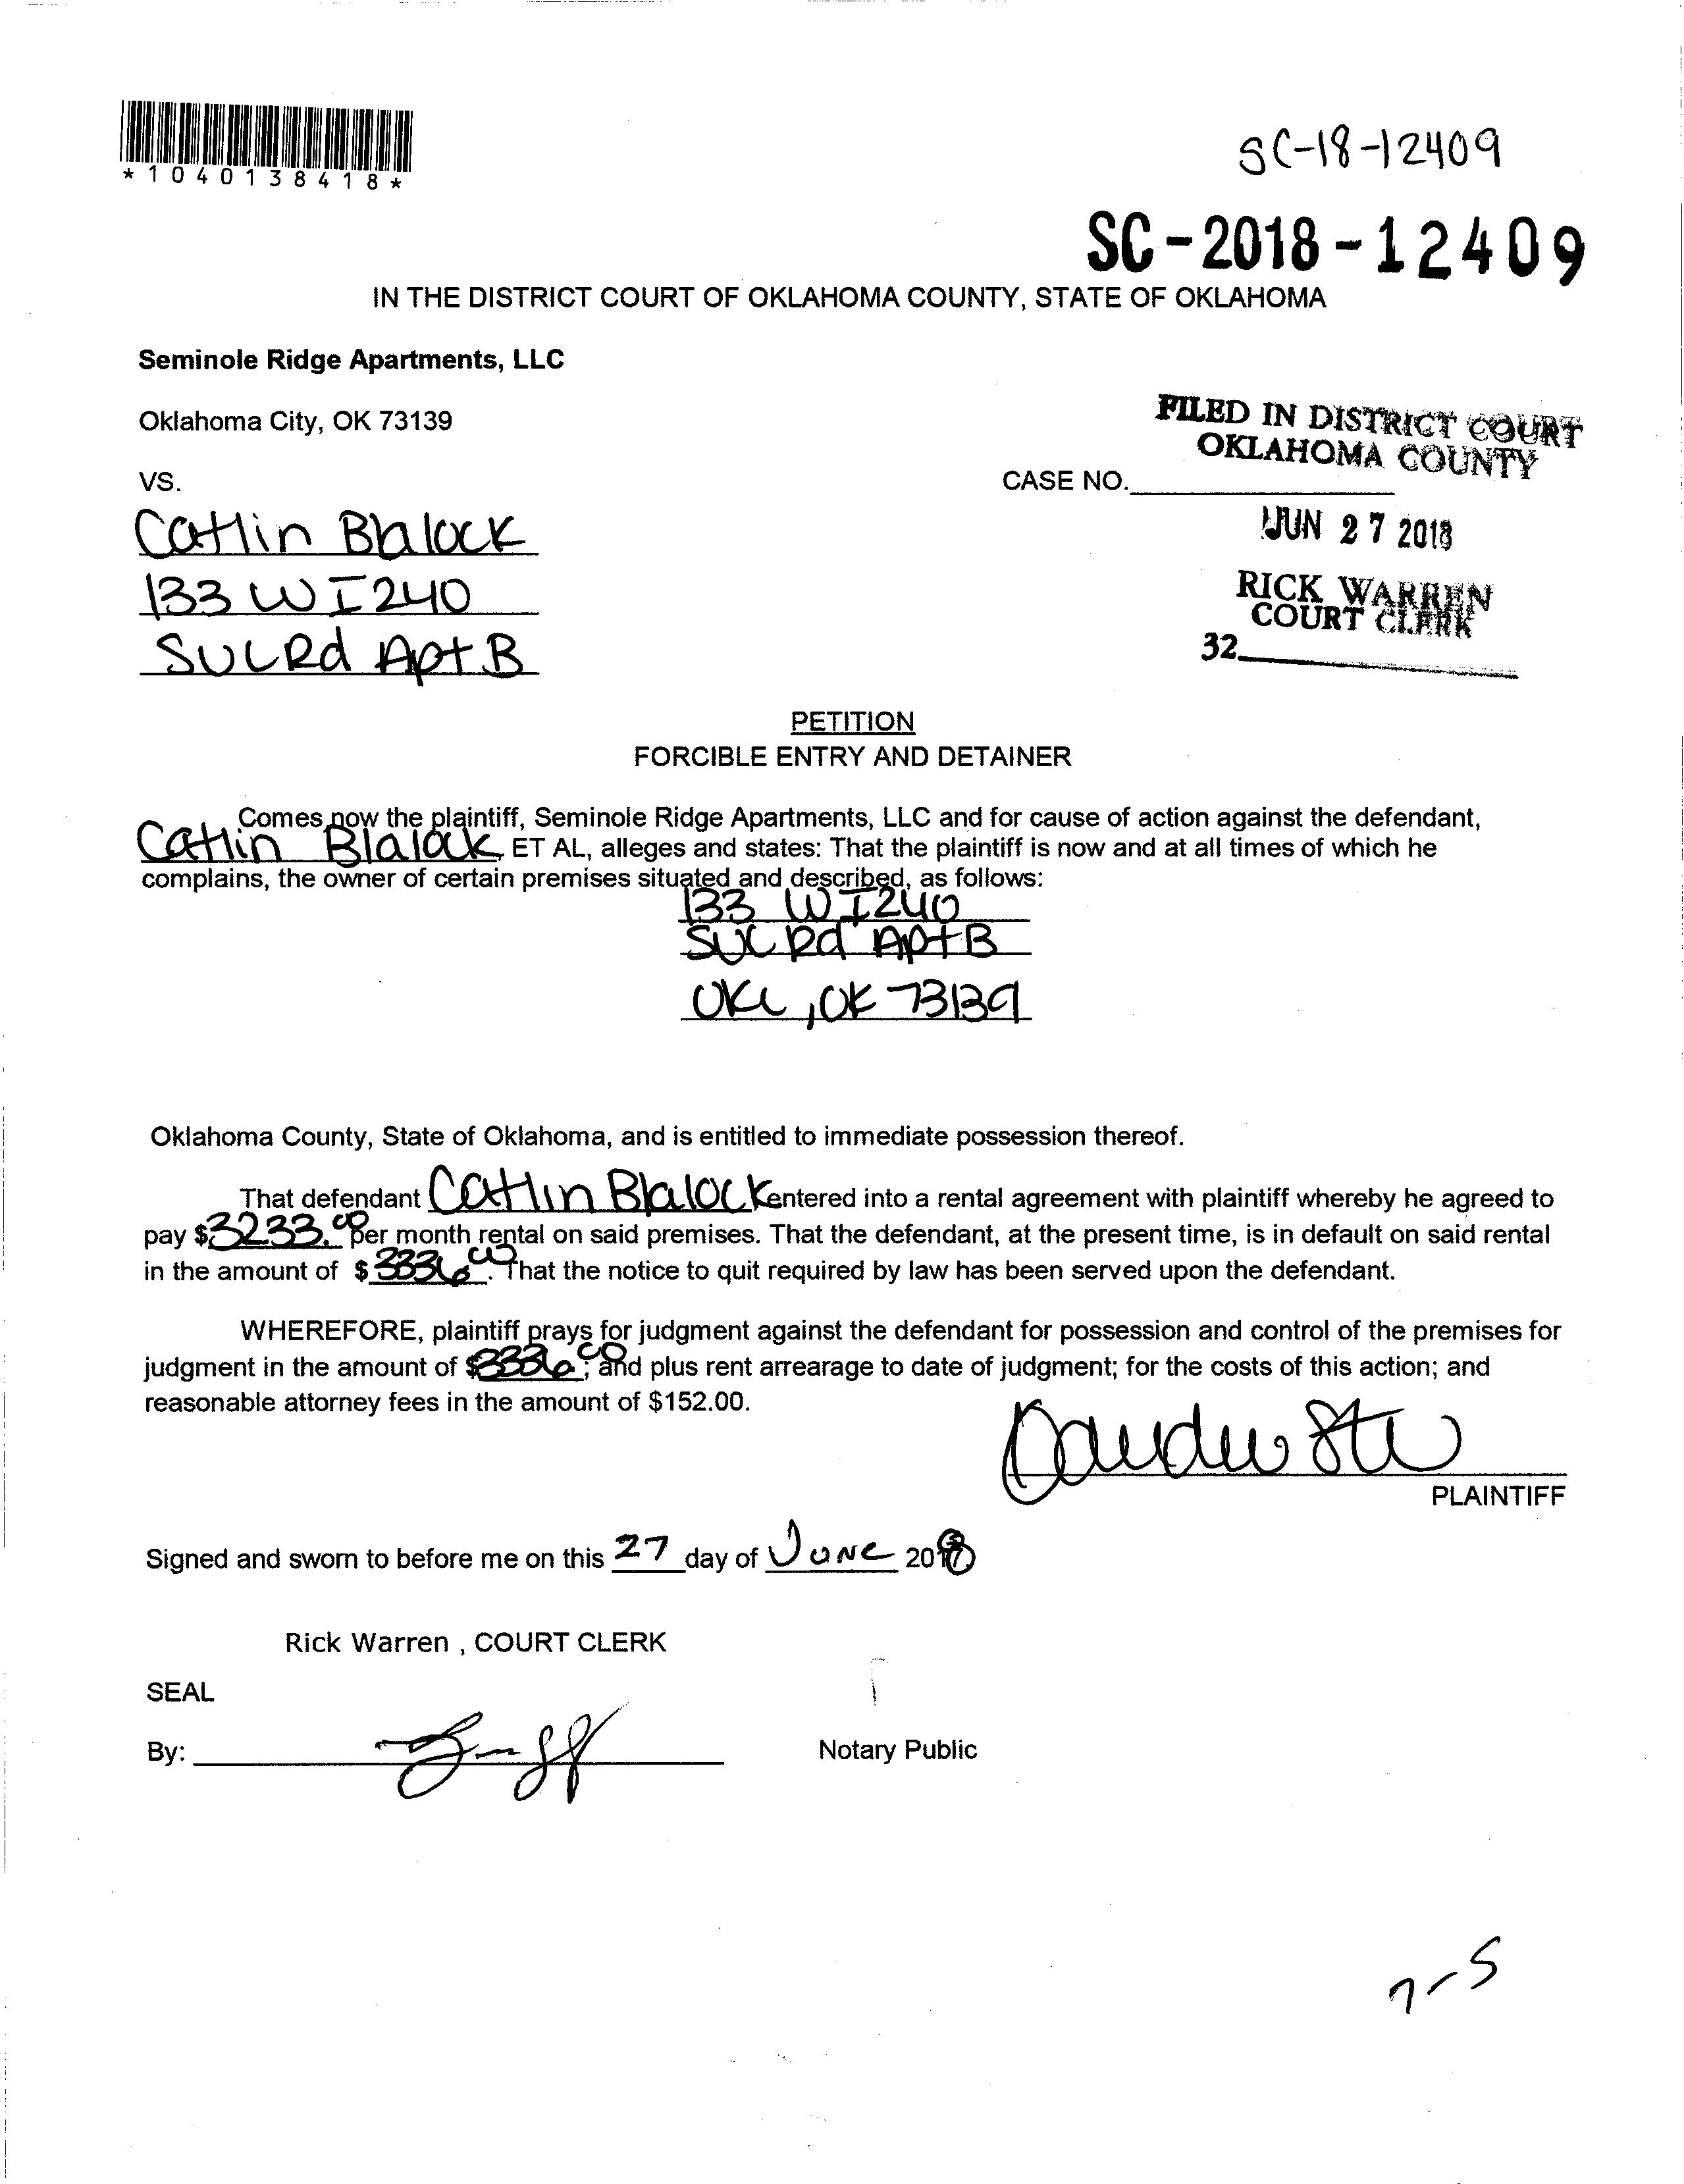 *1040138418*
SC-18-12409
SC-2018-12409
IN THE DISTRICT COURT OF OKLAHOMA COUNTY, STATE OF OKLAHOMA
Seminole Ridge Apartments, LLC
Oklahoma City, OK 73139
FILED IN DISTRICT COURT
OKLAHOMA COUNTY
VS.
CASE NO.
Catlin Blalock
JUN 27 2018
133 W I240
RICK WARREN
COURT CLERK
SVCRd Apt B
32
PETITION
FORCIBLE ENTRY AND DETAINER
Comes now the plaintiff, Seminole Ridge Apartments, LLC and for cause of action against the defendant,
Catlin Blalock, ET AL, alleges and states: That the plaintiff is now and at all times of which he
complains, the owner of certain premises situated and described, as follows:
133 W I240
SVC Rd Apt B
OKC, OK 73139
Oklahoma County, State of Oklahoma, and is entitled to immediate possession thereof.
That defendant Catlin Blalock entered into a rental agreement with plaintiff whereby he agreed to
pay $3233.00 per month rental on said premises. That the defendant, at the present time, is in default on said rental
in the amount of $3336.00. That the notice to quit required by law has been served upon the defendant.
WHEREFORE, plaintiff prays for judgment against the defendant for possession and control of the premises for
judgment in the amount of $3336.00; and plus rent arrearage to date of judgment; for the costs of this action; and
reasonable attorney fees in the amount of $152.00.
PLAINTIFF
Signed and sworn to before me on this 27 day of June 2018
Rick Warren , COURT CLERK
SEAL
By:
Notary Public
7-5